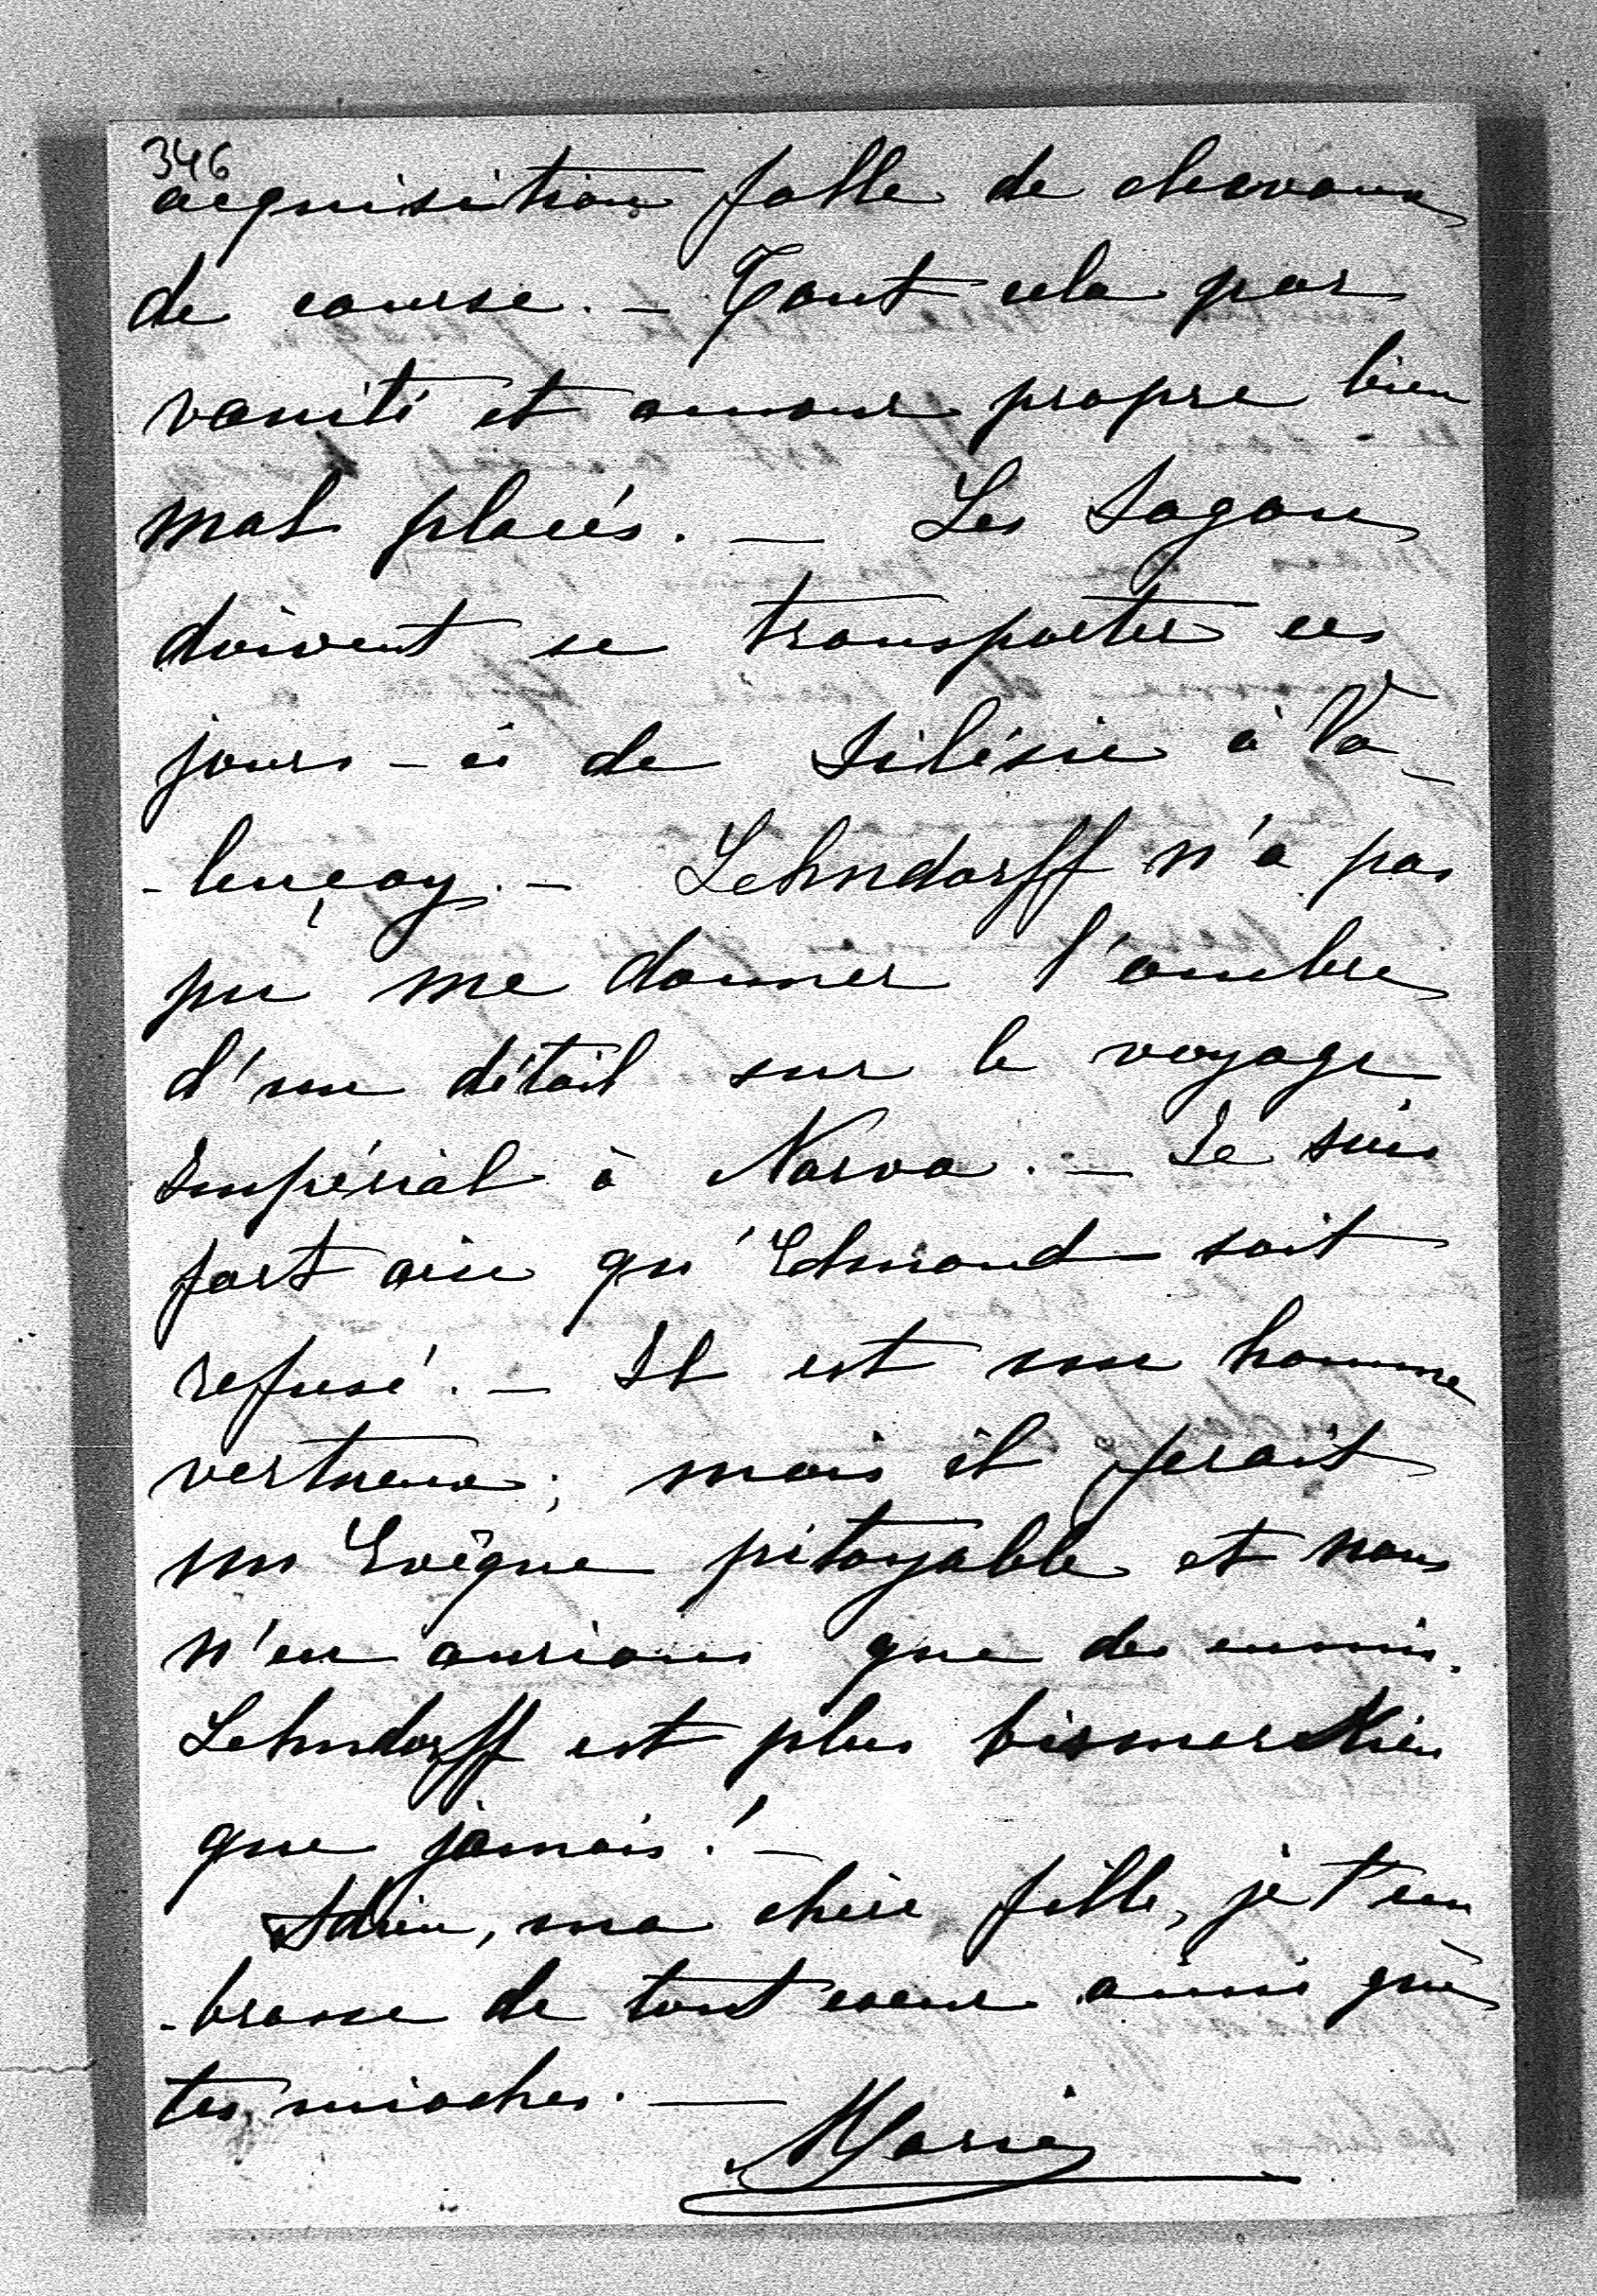 346
acquisition folle de chevaux
de course. – Tout cela par
vanité et amour propre bien
mal placés. — Les Sagan
doivent se transporter ces
jours-ci de Silésie à Va-
-lençay. – Lehndorff n'a pas
pu me donner l'ombre
d'un détail sur le voyage
Impérial à Narva. – Je suis
fort aise qu'Edmond soit
refusé. – Il est un homme
vertueux; mais il ferait
un Evêque pitoyable et nous
n'en aurions que des ennuis.
Lehndorff est plus bismarckien
que jamais! –
Adieu, ma chère fille, je t'em
-brasse de tout coeur ainsi que
tes mioches. —
Marie